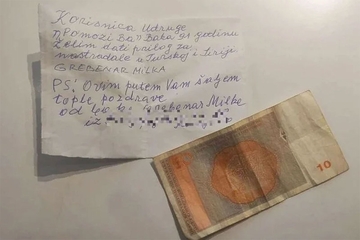 Korisnica Udruge
"Pomozi Ba" Baka 91 godinu
Želim dati prilog za
nastradale u Turskoj i Siriji
GREBENAR MILKA
PS: Ovim putem Vam šaljem
tople pozdrave
od Grebenar Milke
iz
10